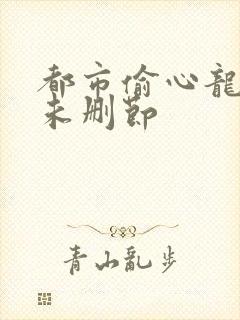 都市偷心龍
未删節
青山亂步